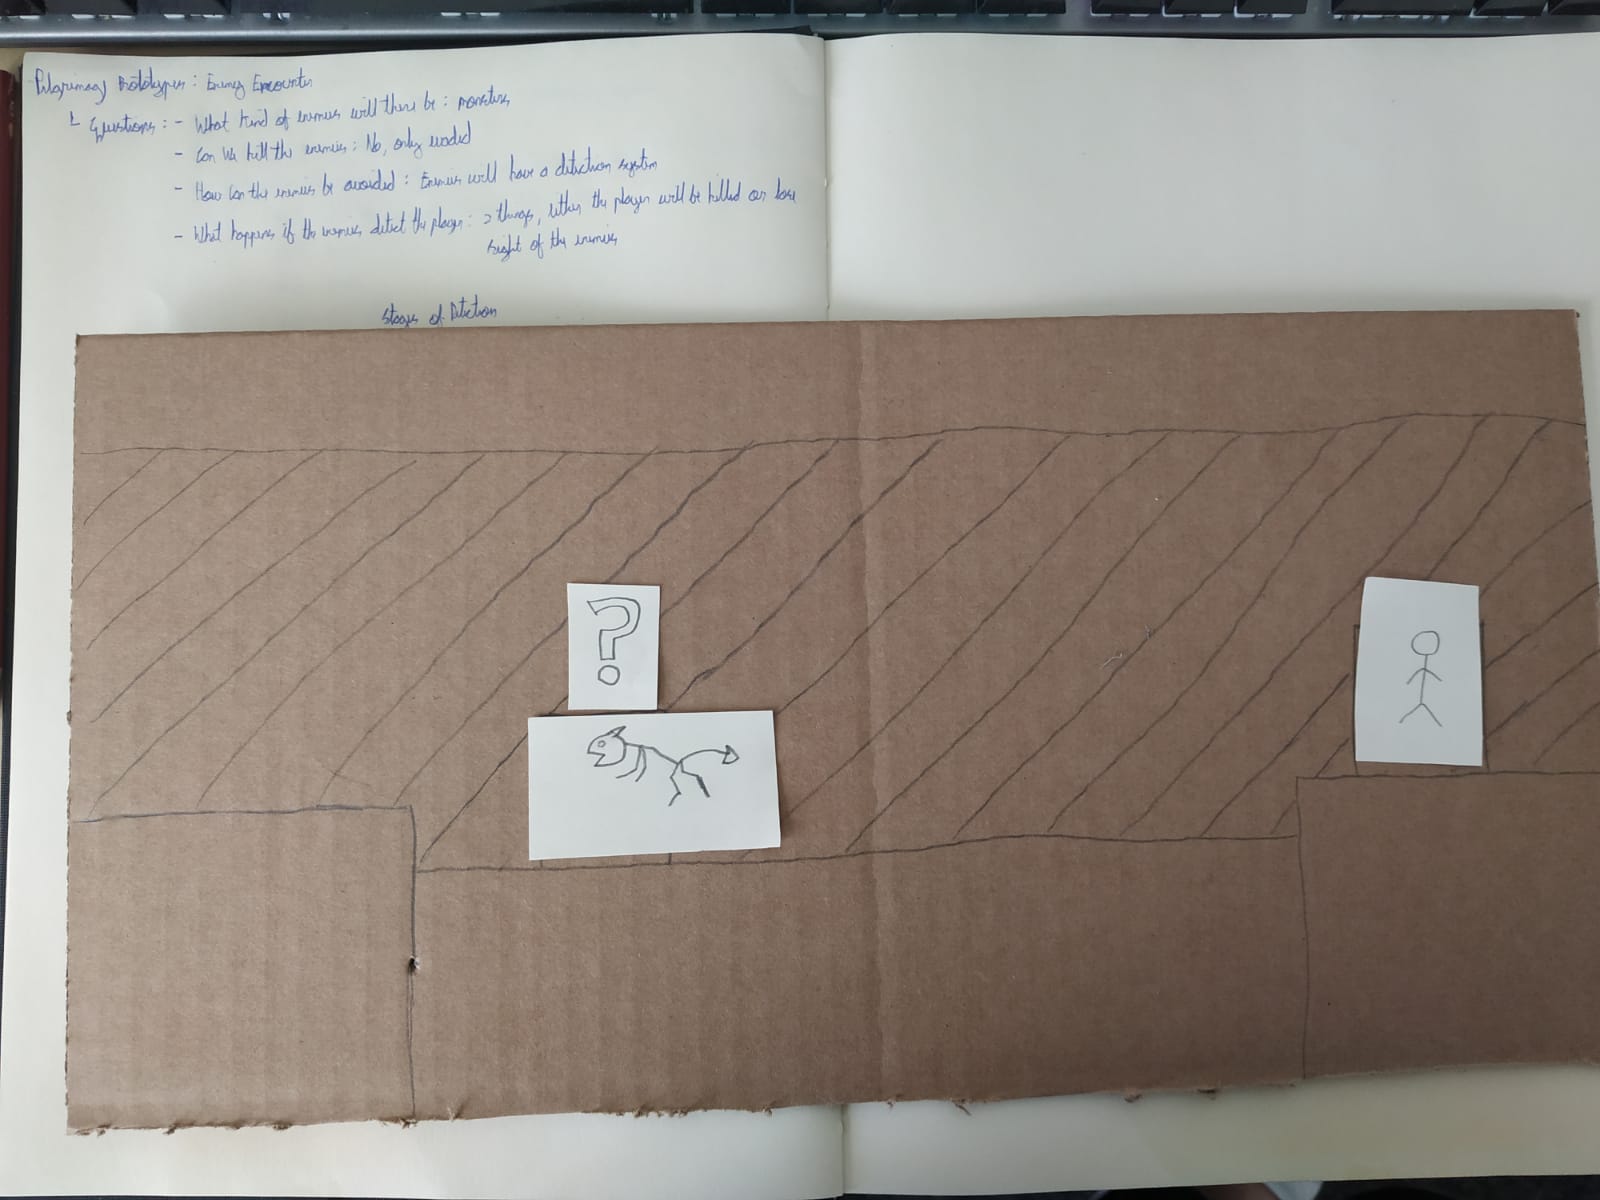 Pilgrimag Prototypes : Enemy Encounter
└ Questions : - What kind of enemies will there be : monsters
- Can we kill the enemies : No, only evaded
- How can the enemies be avoided : Enemies will have a detection system
- What happens if the enemies detect the player : 2 things, either the player will be killed or lose
sight of the enemies
Stages of Detection
?